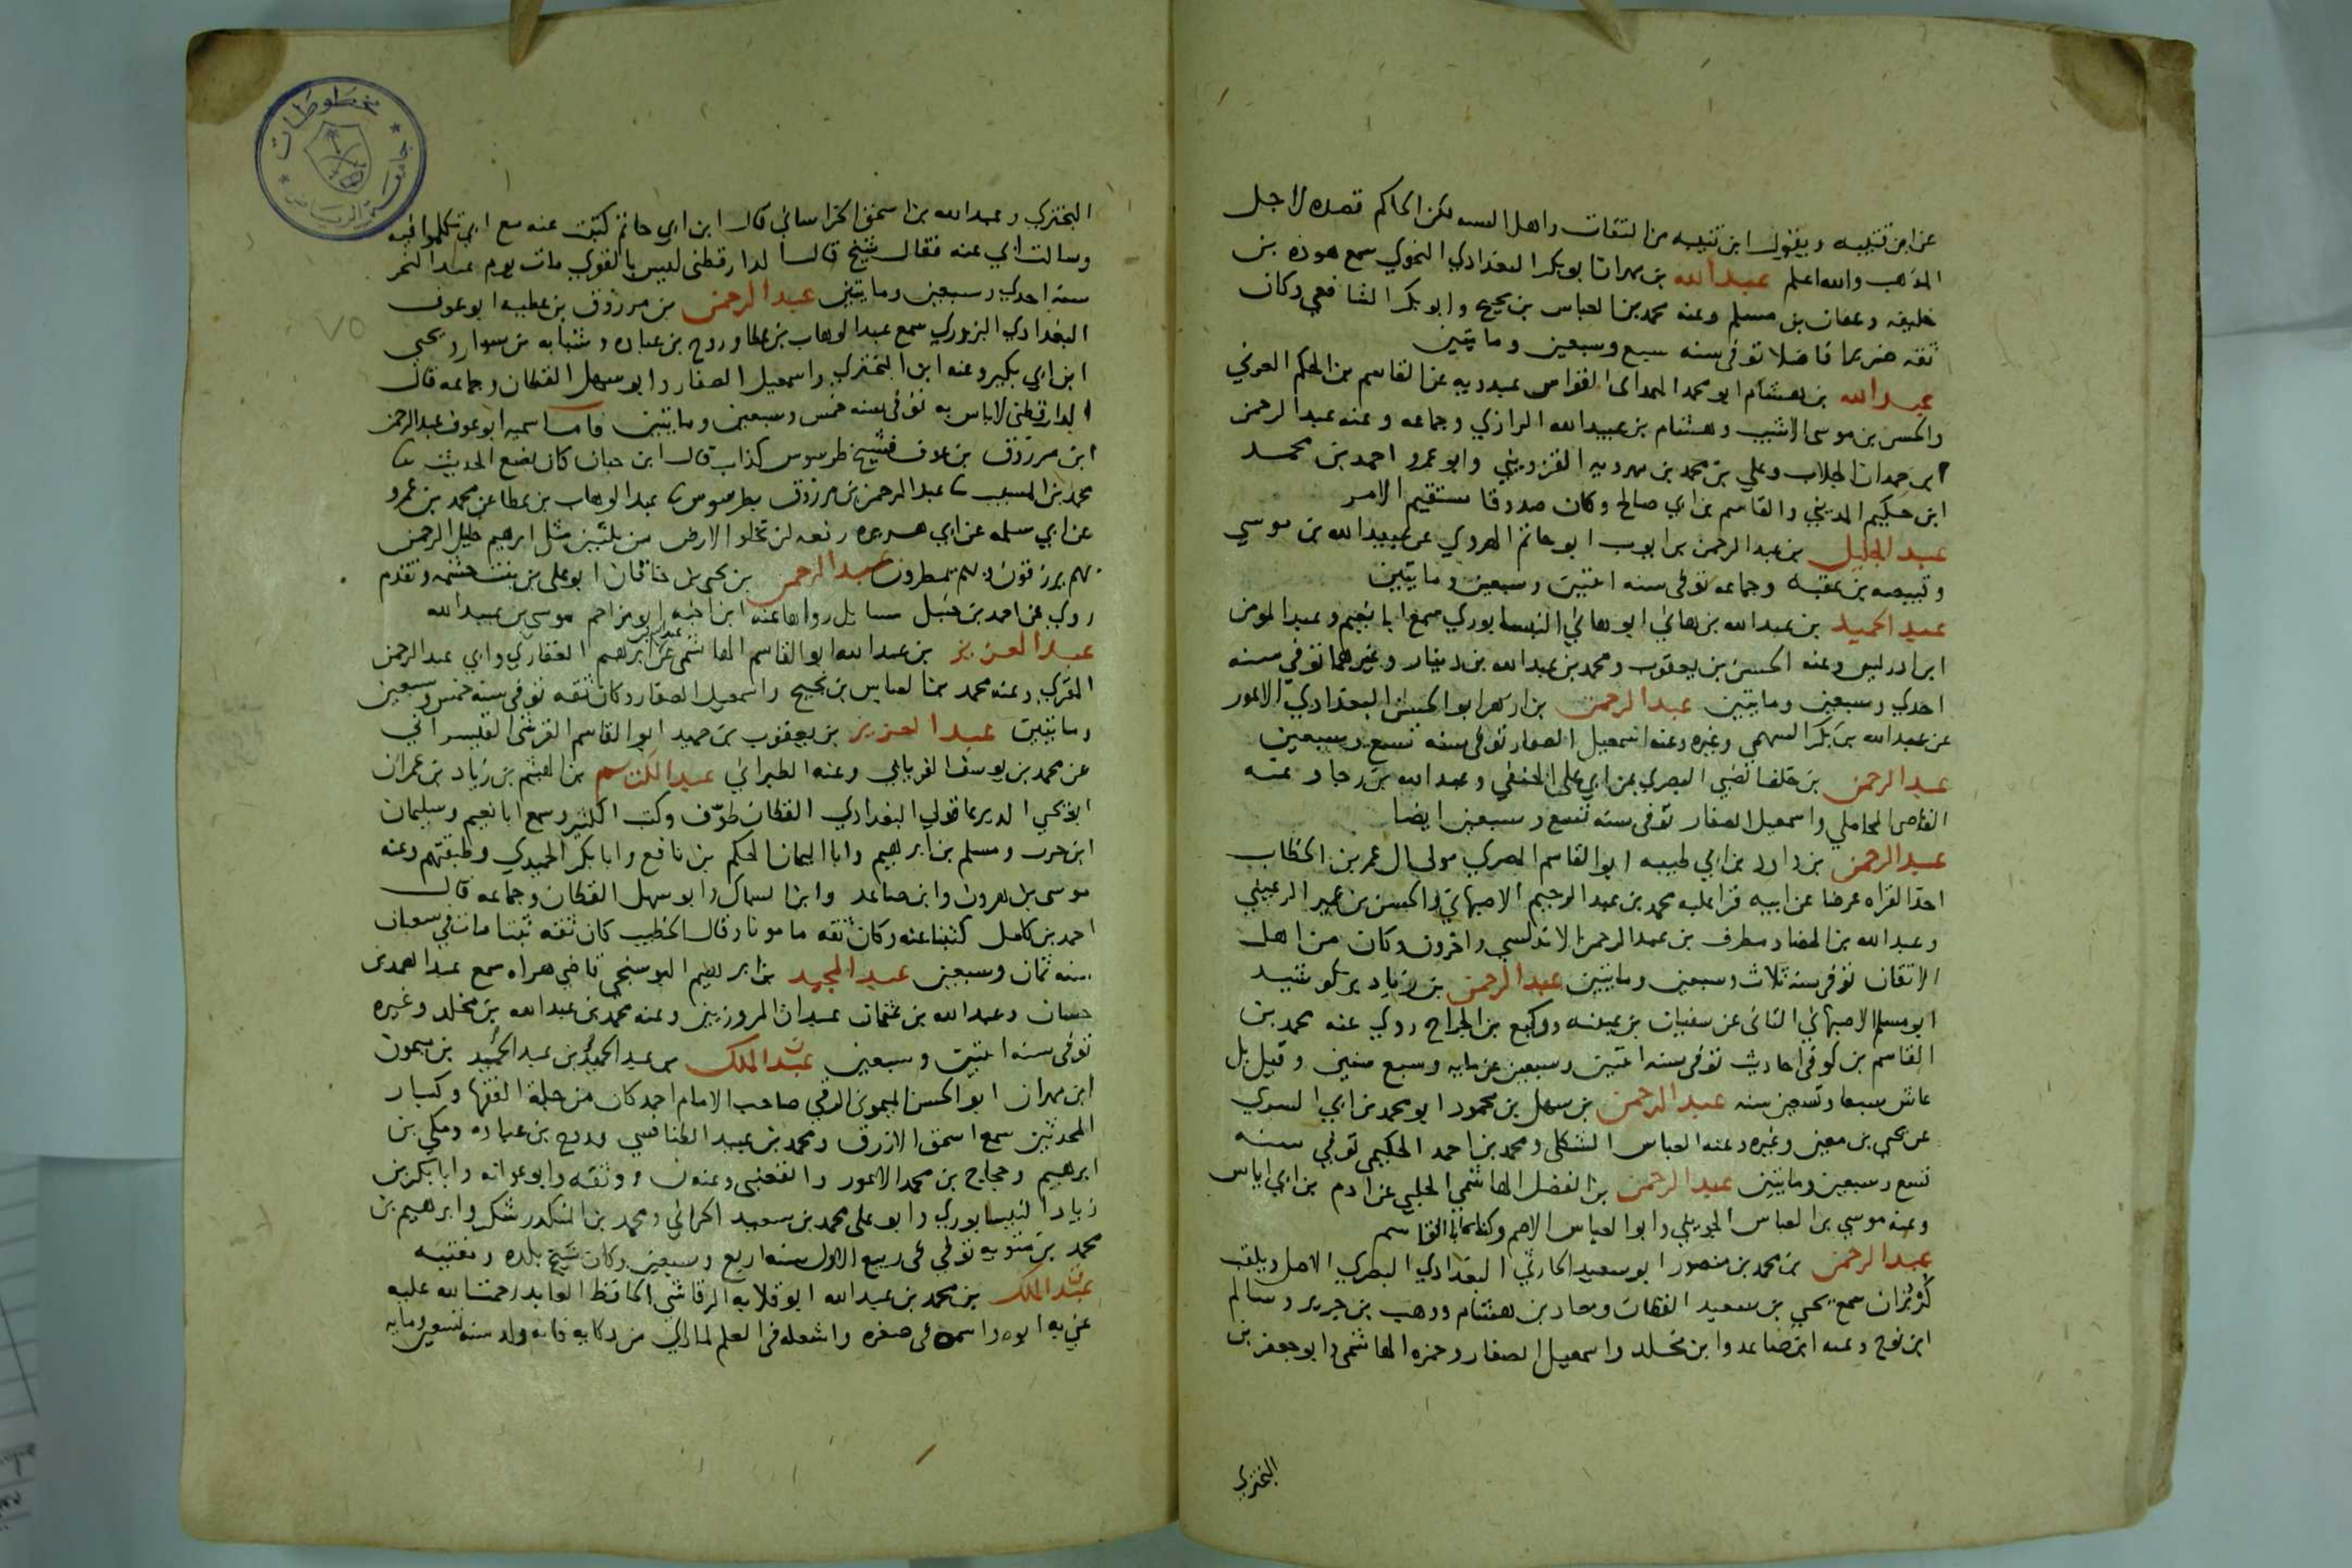 عن ابن قتيبه ويقول ابن قتيبه من الثقات واهل السنه لكن الحاكم قصده لاجل
المذهب والله اعلم عبد الله بن مهران ابو بكر البغدادي النحوي سمع هوذه بن
خليفه وعفان بن مسلم وعنه محمد بن العباس بن نجيح وابو بكر الشافعي وكان
ثقه ضريرا فاضلا توفي سنه سبع وسبعين ومايتين
عبد الله بن هشام ابو محمد الهمداني القواس عبدويه عن القاسم بن الحكم العرني
والحسن بن موسى الاشيب وهشام بن عبيد الله الرازي وجماعه وعنه عبد الرحمن
ابن حمدان الجلاب وعلي بن محمد بن مهرويه القزويني وابو عمرو احمد بن محمد
ابن حكيم المديني والقاسم بن ابي صالح وكان صدوقا مستقيم الامر
عبد الجليل بن عبد الرحمن بن ايوب ابو حاتم الهروي عن عبيد الله بن موسي
وقبيصه بن عقبه وجماعه توفي سنه اثنتين وسبعين ومايتين
عبد الحميد بن عبد الله بن هاني ابو هاني النيسابوري سمع ابا نعيم وعبد المومن
ابن ادريس وعنه الحسن بن يعقوب ومحمد بن عبد الله بن دينار وغيرهما توفي سنه
احدي وسبعين ومايتين عبد الرحمن بن ازهر ابو الحسن البغدادي الاعور
عن عبد الله بن بكر السهمي وغيره وعنه اسمعيل الصفار توفي سنه تسع وسبعين
عبد الرحمن بن خلف الضبي البصري عن ابي علي الحنفي وعبد الله بن رجا وعنه
القاضي المحاملي واسمعيل الصفار توفي سنه تسع وسبعين ايضا
عبد الرحمن بن داود بن ابي طيبه ابو القاسم المصري مولي ال عمر بن الخطاب
اخذ القراه عرضا عن ابيه قرا عليه محمد بن عبد الرحيم الاصبهاني والحسن بن عمير الرعيني
وعبد الله بن ومطرف بن عبد الرحمن الاندلسي واخرون وكان من اهل
الاتقان توفي سنه ثلاث وسبعين ومايتين عبد الرحمن بن زياد بن كوشيد
ابو مسلم الاصبهاني التاني عن سفيان بن عيينه ووكيع بن الجراح روي عنه محمد بن
القاسم بن كوفي احاديث توفي سنه اثنتين وسبعين عن مايه وسبع سنين وقيل بل
عاش سبعا وتسعين سنه عبد الرحمن بن سهل بن محمود ابو محمد بن ابي السري
عن يحيي بن معين وغيره وعنه العباس الشكلي ومحمد بن احمد الحكيمي توفي سنه
تسع وسبعين ومايتين عبد الرحمن بن الفضل الهاشمي الحلبي عن ادم بن ابي اياس
وعنه موسي بن العباس الجويني وابو العباس الاصم وكناه ابا القاسم
عبد الرحمن بن محمد بن منصور ابو سعيد الحارثي البغدادي البصري الاصل ويلقب
كربزان سمع يحيي بن سعيد القطان ومعاذ بن هشام ووهب بن جرير وسالم
ابن نوح وعنه ابن صاعد وابن مخلد واسمعيل الصفار وحمزه الهاشمي وابو جعفر بن
البختري
البختري وعبد الله بن اسحق الخراساني قال ابن ابي حاتم كتبت عنه مع ابي تكلموا فيه
وسالت ابي عنه فقال شيخ قال الدارقطني ليس بالقوي مات يوم عيد النحر
سنه احدي وسبعين ومايتين عبد الرحمن بن مرزوق بن عطيه ابو عوف
البغدادي البزوري سمع عبد الوهاب بن عطا وروح بن عباده وشبابه بن سوار ويحيي
ابن ابي بكير وعنه ابن البختري واسمعيل الصفار وابو سهل القطان وجماعه قال
الدارقطني لاباس به توفي سنه خمس وسبعين ومايتين فاما سميه ابو عوف عبد الرحمن
ابن مرزوق بن عوف فشيخ طرسوس كذاب قال ابن حبان كان يضع الحديث ثنا
محمد بن المسيب ثنا عبد الرحمن بن مرزوق بطرسوس ثنا عبد الوهاب بن عطا عن محمد بن عمرو
عن ابي سلمه عن ابي هريره رفعه لن تخلو الارض من ثلثين مثل ابرهيم خليل الرحمن
بهم يرزقون وبهم يمطرون عبد الرحمن بن يحيي بن خاقان ابو علي بن بنت وتقدم
روي عن احمد بن حنبل مسايل رواها عنه ابن اخيه ابو مزاحم موسي بن عبيد الله
عبد العزيز بن عبد الله ابو القاسم الهاشمي عن عبد الله بن ابرهيم الغفاري وابي عبد الرحمن
المقري وعنه محمد بن العباس بن نجيح واسمعيل الصفار وكان ثقه توفي سنه خمس وسبعين
ومايتين عبد العزيز بن يعقوب بن حميد ابو القاسم القرشي القيسراني
عن محمد بن يوسف الفريابي وعنه الطبراني عبد الكريم بن الهيثم بن زياد بن عمران
ابو يحيي الديرعاقولي البغدادي القطان طوّف وكتب الكثير وسمع ابا نعيم وسليمان
ابن حرب ومسلم بن ابرهيم وابا اليمان الحكم بن نافع وابا بكر الحميدي وطبقتهم وعنه
موسي بن هرون وابن صاعد وابن السماك وابو سهل القطان وجماعه قال
احمد بن كامل كتبنا عنه وكان ثقه مامونا وقال الخطيب كان ثقه ثبتا مات في شعبان
سنه ثمان وسبعين عبد المجيد بن ابرهيم البوسنجي قاضي هراه سمع عبد الصمد بن
حسان وعبد الله بن عثمان عبدان المروزيين وعنه محمد بن عبد الله بن مخلد وغيره
توفي سنه اثنتين وسبعين عبد الملك بن عبد الحميد بن عبد الحميد بن ميمون
ابن مهران ابو الحسن الميموني الرقي صاحب الامام احمد كان من جلة الفقها وكبار
المحدثين سمع اسحق الازرق ومحمد بن عبيد الطنافسي وروح بن عباده ومكي بن
ابرهيم وحجاج بن محمد الاعور والقعنبي وعنه ن ووثقه وابو عوانه وابا بكر بن
زياد النيسابوري وابو علي محمد بن سعيد الحراني ومحمد بن المنكدر شكر وابرهيم بن
محمد بن متويه توفي في ربيع الاول سنه اربع وسبعين وكان شيخ بلده ومفتيه
عبد الملك بن محمد بن عبد الله ابو قلابه الرقاشي الحافظ العابد رحمة الله عليه
عني به ابوه واسمعه في صغره واشغله في العلم لما راي من ذكايه فانه ولد سنه تسعين ومايه
٧٥
مخطوطات
جامعة الرياض